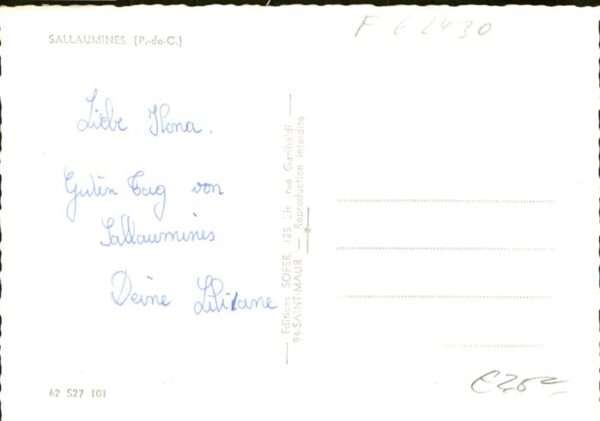 SALLAUMINES (P.-de-C.)
F 62430
Liebe Ilona.
Guten Tag von
Sallaumines
Deine Liliane
Editions SOFER, 125 bis rue Garibaldi
94-SAINT-MAUR — Reproduction interdite
62 527 101